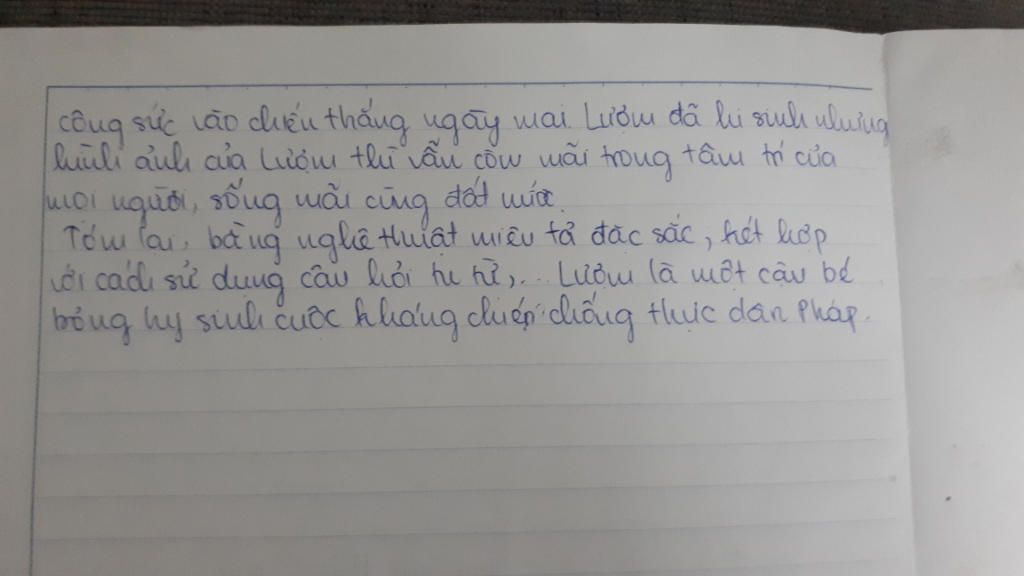 công sức vào chiến thắng ngày mai. Lượm đã hi sinh nhưng
hình ảnh của Lượm thì vẫn còn mãi trong tâm trí của
mọi người, sống mãi cùng đất nước.
Tóm lại, bằng nghệ thuật miêu tả đặc sắc, kết hợp
với cách sử dụng câu hỏi tu từ,... Lượm là một cậu bé
bỏng hy sinh cuộc kháng chiến chống thực dân Pháp.